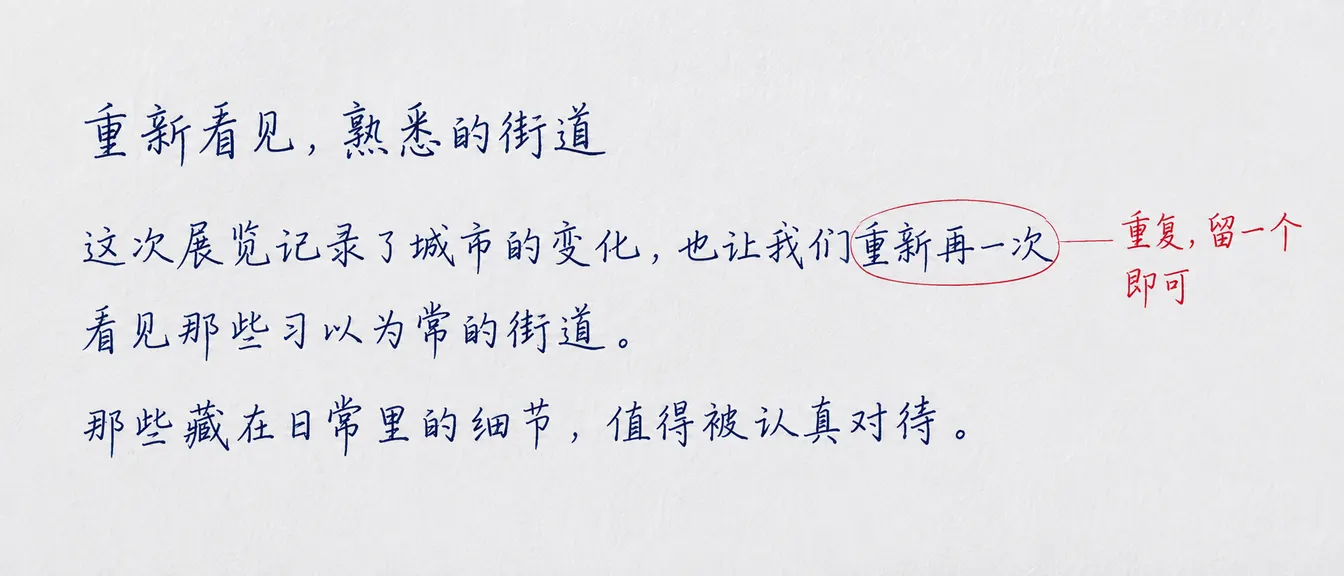 重新看见，熟悉的街道
这次展览记录了城市的变化，也让我们重新再一次
看见那些习以为常的街道。
那些藏在日常里的细节，值得被认真对待。
重复，留一个
即可